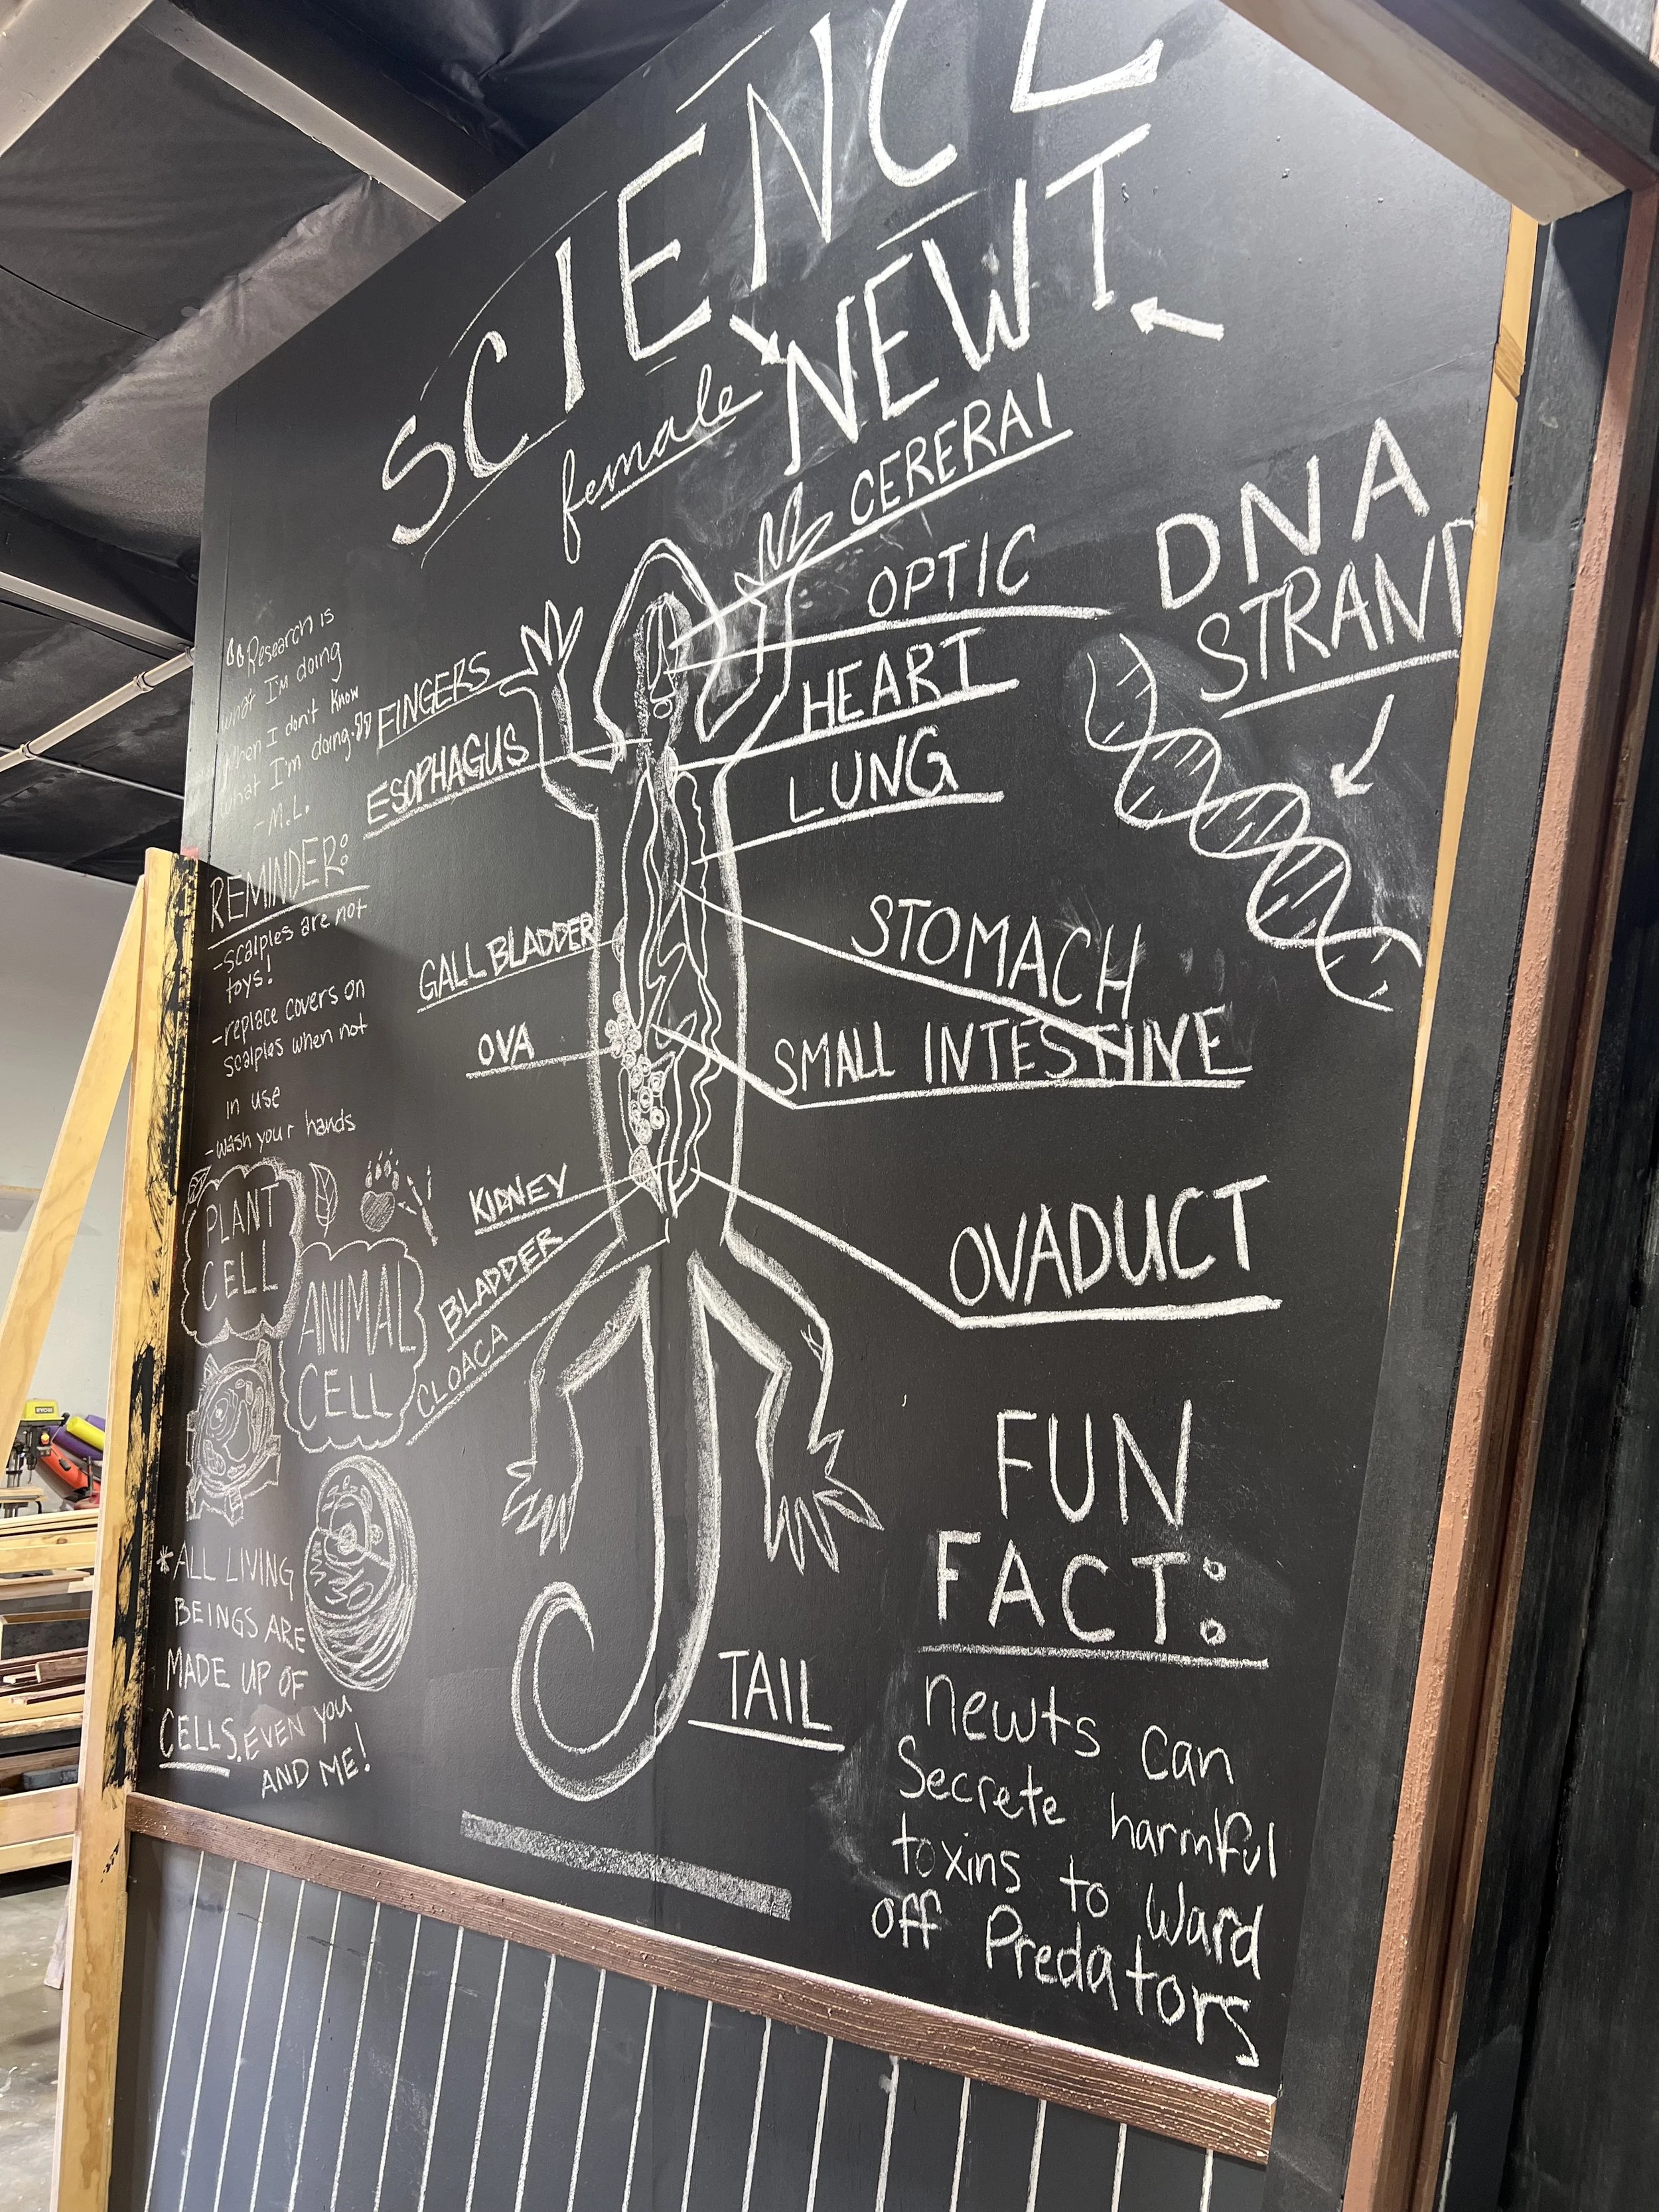 SCIENCE
female NEWT
CERERAl
OPTIC
HEART
LUNG
STOMACH
SMALL INTESTINE
OVADUCT
FINGERS
ESOPHAGUS
GALL BLADDER
OVA
KIDNEY
BLADDER
CLOACA
TAIL
DNA
STRAND
"Research is
what I'm doing
when I don't know
what I'm doing."
- M.L.
REMINDER:
- scalples are not
toys!
- replace covers on
scalples when not
in use
- wash your hands
PLANT
CELL
ANIMAL
CELL
* ALL LIVING
BEINGS ARE
MADE UP OF
CELLS. EVEN YOU
AND ME!
FUN
FACT:
newts can
Secrete harmful
toxins to Ward
off Predators